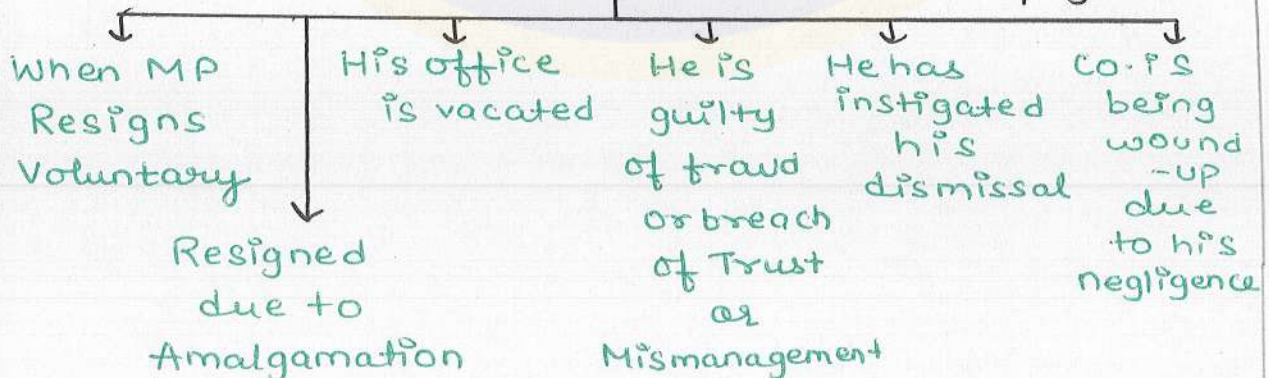 When MP
Resigns
Voluntary
Resigned
due to
Amalgamation
His office
is vacated
He is
guilty
of fraud
or breach
of Trust
or
Mismanagement
He has
instigated
his
dismissal
Co. is
being
wound
-up
due
to his
negligence